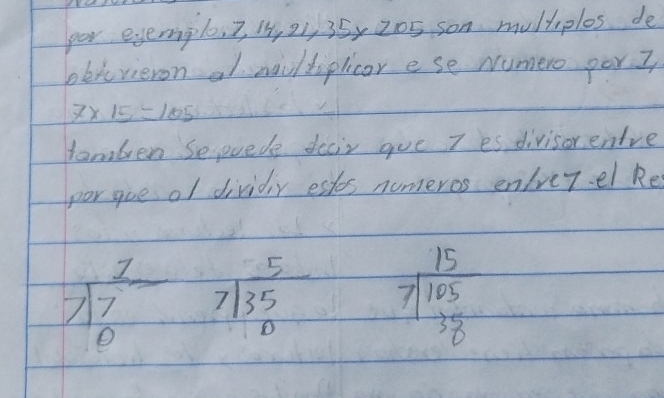 por ejemplo. 7, 14, 21, 35 y 105 son multiplos de
obtuvieron al multiplicar ese Numero por 1,
7 x 15 = 105
tambien se puede decir que 7 es divisor entre
porque al dividir estos numeros entre 7 el Re
1 5 15
7 7 7 35 7 105
0 0 35
0